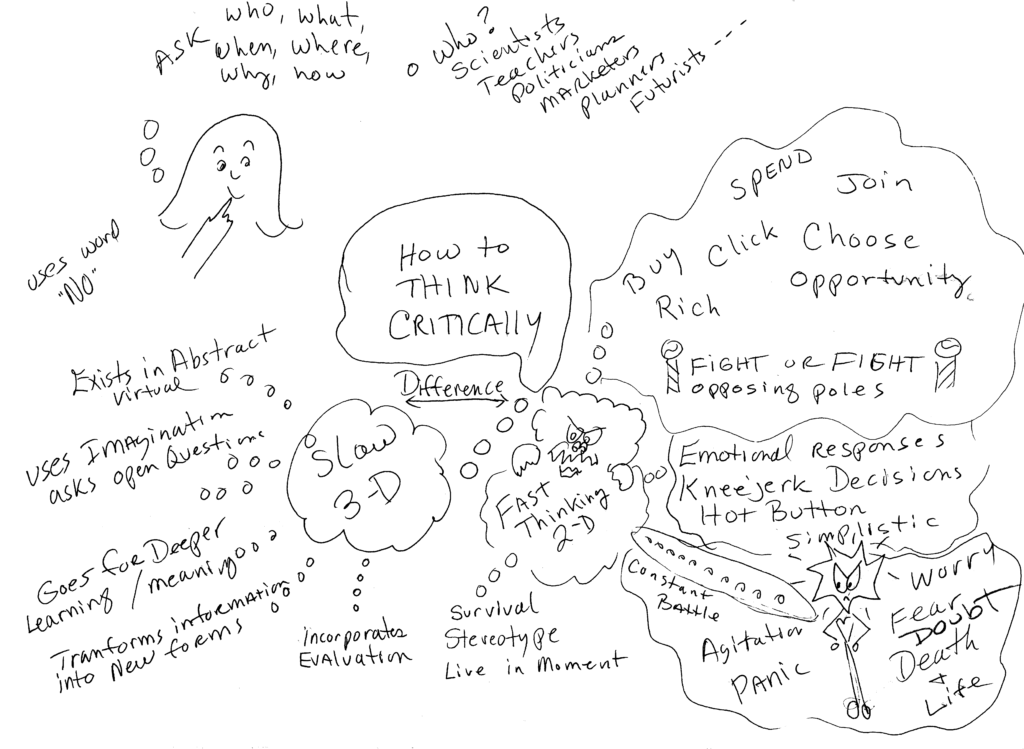 ASK who, what,
when, where,
why, how
Who?
Scientists
Teachers
Politicians
marketers
planners
Futurists ---
uses word
"NO"
How to
THINK
CRITICALLY
SPEND
Join
BUY Click Choose
Rich
opportunity
FiGHT or FlIGHT
opposing poles
Exists in Abstract
virtual
uses Imagination
asks open Questions
Goes for Deeper
Learning / meaning
Tranforms information
into New forms
Difference
Slow
3-D
incorporates
EVALUATION
FAST
Thinking
2-D
Survival
Stereotype
Live in Moment
Emotional Responses
Kneejerk Decisions
Hot Button
Simplistic
Constant
Battle
Agitation
PANIC
Worry
Fear
DOUBT
Death
+
Life